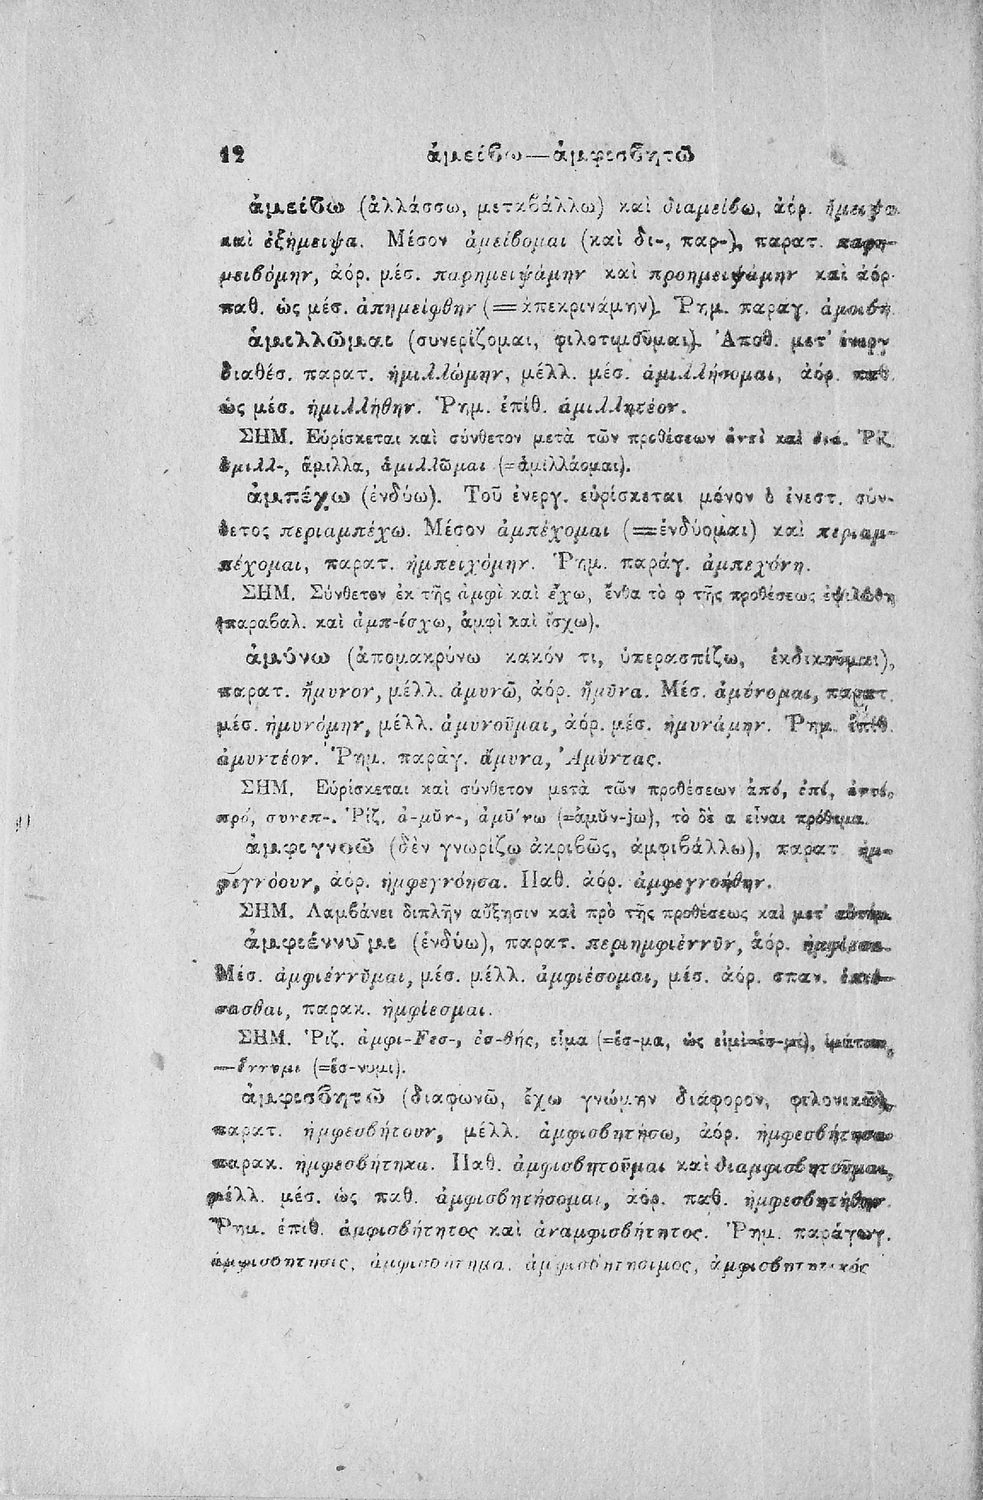 12 ἀμείβω—ἀμφισβητῶ
ἀμείβω (ἀλλάσσω, μεταβάλλω) καὶ διαμείβω, ἀόρ. ἤμειψα
καὶ ἐξήμειψα. Μέσον ἀμείβομαι (καὶ δι-, παρ-), παρατ. παρη-
μειβόμην, ἀόρ. μέσ. παρημειψάμην καὶ προημειψάμην καὶ ἀόρ.
παθ. ὡς μέσ. ἀπημείφθην (=ἀπεκρινάμην). Ῥημ. παραγ. ἀμοιβή.
ἁμιλλῶμαι (συνερίζομαι, φιλοτιμοῦμαι). Ἀποθ. μετ' ἐνεργ
διαθέσ. παρατ. ἡμιλλώμην, μέλλ. μέσ. ἁμιλλήσομαι, ἀόρ. παθ.
ὡς μέσ. ἡμιλλήθην. Ῥημ. ἐπίθ. ἁμιλλητέον.
ΣΗΜ. Εὑρίσκεται καὶ σύνθετον μετὰ τῶν προθέσεων ἀντὶ καὶ διά. Ῥίζ.
ἁμιλλ-, ἅμιλλα, ἁμιλλῶμαι (=ἁμιλλάομαι).
ἀμπέχω (ἐνδύω). Τοῦ ἐνεργ. εὑρίσκεται μόνον ὁ ἐνεστ. σύν-
θετος περιαμπέχω. Μέσον ἀμπέχομαι (=ἐνδύομαι) καὶ περιαμ-
πέχομαι, παρατ. ἠμπειχόμην. Ῥημ. παράγ. ἀμπεχόνη.
ΣΗΜ. Σύνθετον ἐκ τῆς ἀμφὶ καὶ ἔχω, ἔνθα τὸ φ τῆς προθέσεως ἐψιλώθη
(παραβαλ. καὶ ἀμπ-ίσχω, ἀμφὶ καὶ ἴσχω).
ἀμύνω (ἀπομακρύνω κακόν τι, ὑπερασπίζω, ἐκδικοῦμαι),
παρατ. ἤμυνον, μέλλ. ἀμυνῶ, ἀόρ. ἤμῡνα. Μέσ. ἀμύνομαι, παρατ.
μέσ. ἠμυνόμην, μέλλ. ἀμυνοῦμαι, ἀόρ. μέσ. ἠμυνάμην. Ῥημ. ἐπίθ.
ἀμυντέον. Ῥημ. παράγ. ἄμυνα, Ἀμύντας.
ΣΗΜ. Εὑρίσκεται καὶ σύνθετον μετὰ τῶν προθέσεων ἀπό, ἐπί, ἀντί,
πρό, συνεπ-. Ῥίζ. ἀ-μῠν-, ἀμῡ́νω (=ἀμῠν-jω), τὸ δὲ α εἶναι πρόθεμα.
ἀμφιγνοῶ (δὲν γνωρίζω ἀκριβῶς, ἀμφιβάλλω), παρατ ἠμ-
φεγνόουν, ἀόρ. ἠμφεγνόησα. Παθ. ἀόρ. ἀμφεγνοήθην.
ΣΗΜ. Λαμβάνει διπλῆν αὔξησιν καὶ πρὸ τῆς προθέσεως καὶ μετ' αὐτήν.
ἀμφιέννῡμι (ἐνδύω), παρατ. περιημφιέννῡν, ἀόρ. ἠμφίεσα.
Μέσ. ἀμφιέννῠμαι, μέσ. μέλλ. ἀμφιέσομαι, μέσ. ἀόρ. σπαν.
σασθαι, παρακ. ἠμφίεσμαι.
ΣΗΜ. Ῥιζ. ἀμφι-Fεσ-, ἐσ-θής, εἷμα (=ἕσ-μα, ὡς εἰμὶ=ἐσ-μί), ἱμάτιον,
—έννυμι (=ἑσ-νυμι).
ἀμφισβητῶ (διαφωνῶ, ἔχω γνώμην διάφορον, φιλονικῶ),
παρατ. ἠμφεσβήτουν, μέλλ. ἀμφισβητήσω, ἀόρ. ἠμφεσβήτησα
παρακ. ἠμφεσβήτηκα. Παθ. ἀμφισβητοῦμαι καὶ διαμφισβητοῦμαι,
μέλλ. μέσ. ὡς παθ. ἀμφισβητήσομαι, ἀόρ. παθ. ἠμφεσβητήθην
Ῥημ. ἐπίθ. ἀμφισβήτητος καὶ ἀναμφισβήτητος. Ῥημ. παράγωγ.
ἀμφισβήτησις, ἀμφισβήτημα, ἀμφισβητήσιμος, ἀμφισβητητικός